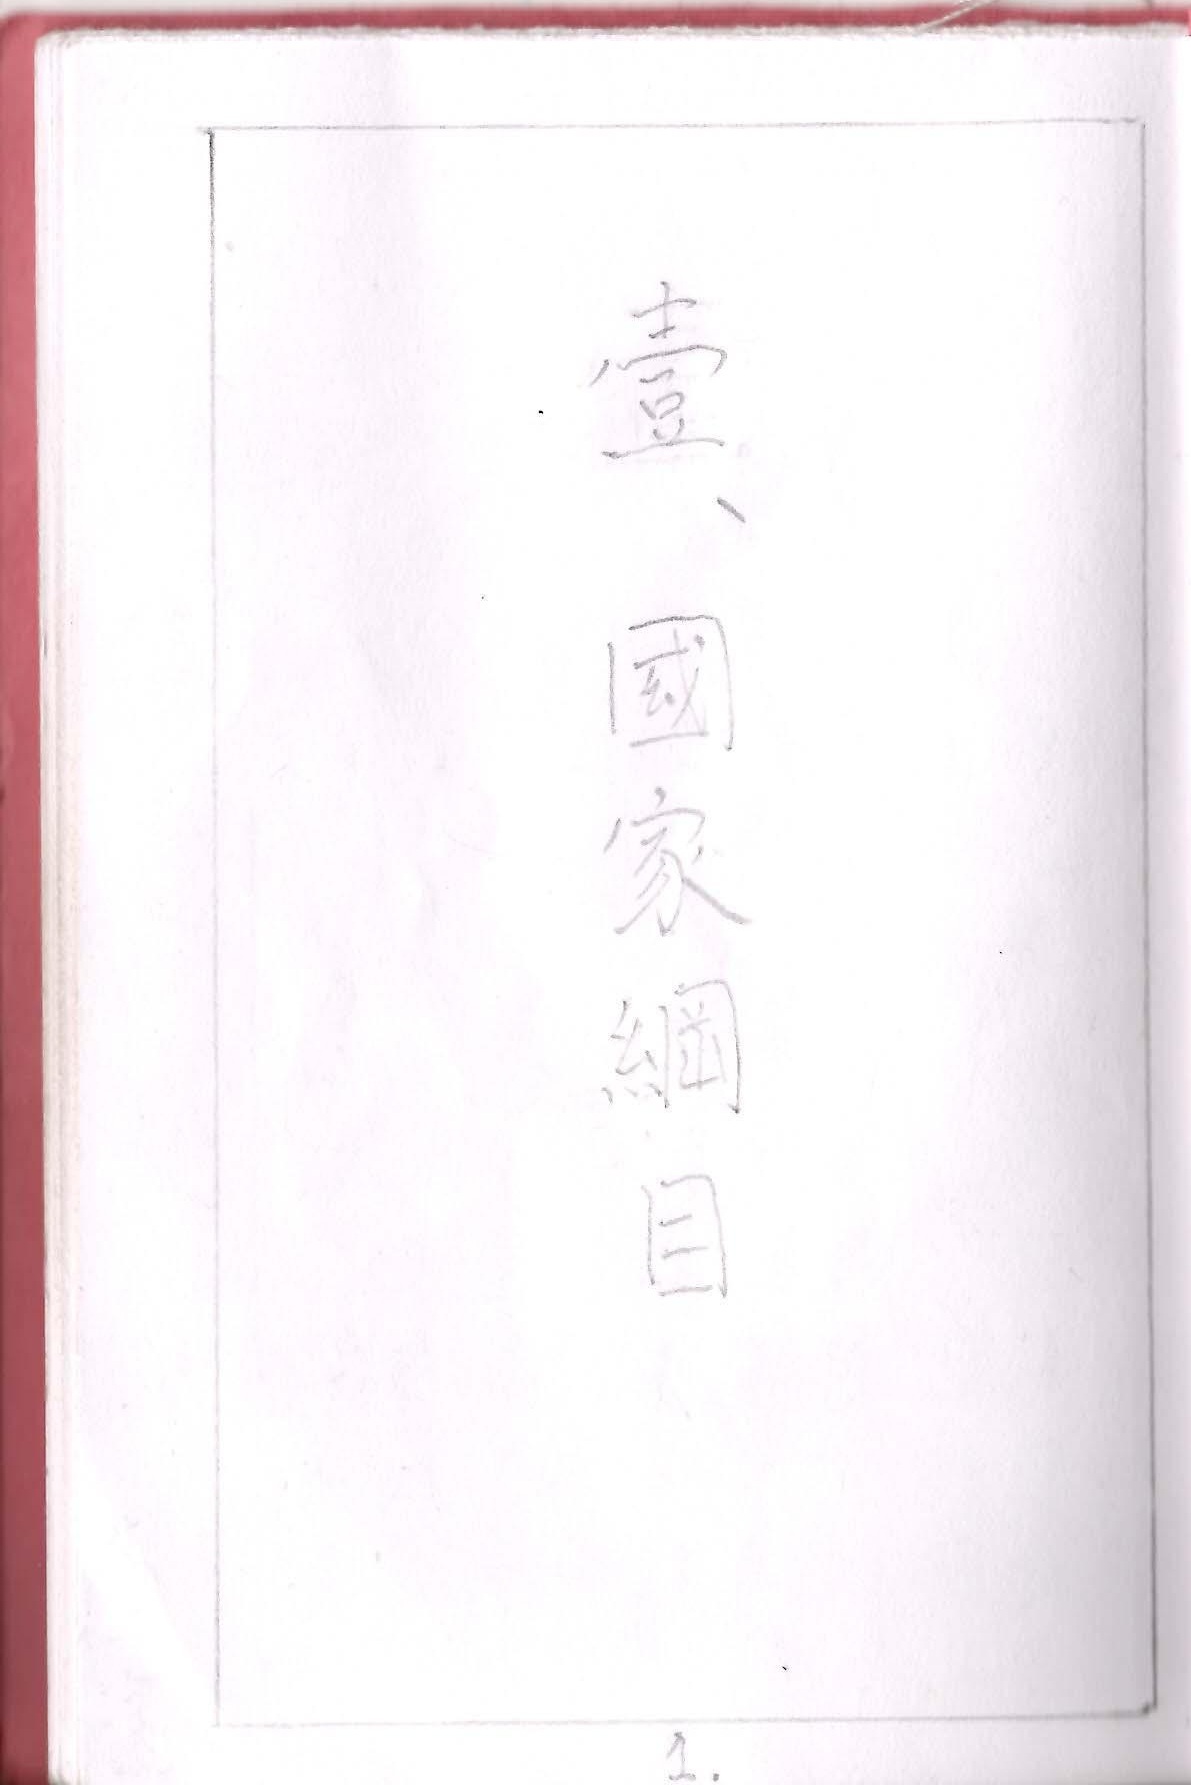 壹、國家綱目
1.